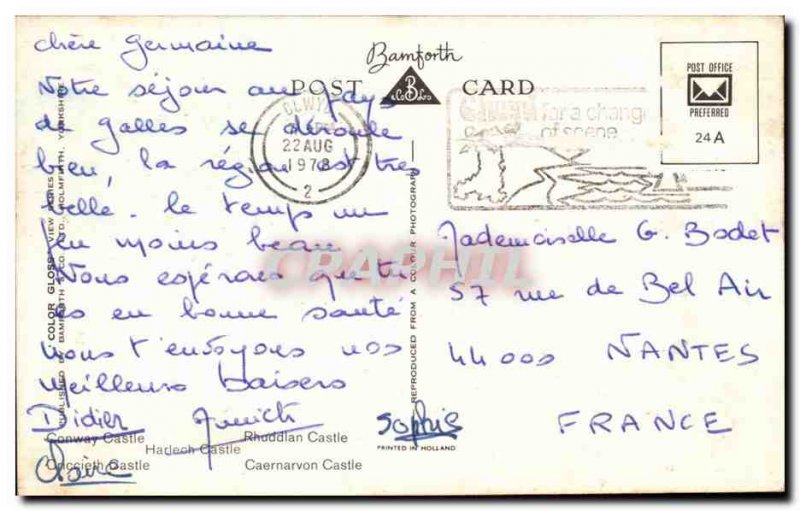 chère Germaine
Notre séjour au pays
de galles se déroule
bien, la région est très
belle. le temps un
peu moins beau
Nous espérons que tu
es en bonne santé
nous t'envoyons nos
meilleurs baisers
Didier Annick Sophie
Claire
Bamforth
POST CARD
B
& Co Ltd
CLWYD
22 AUG
1978
2
for a change
of scene
POST OFFICE
PREFERRED
24 A
Mademoiselle G. Bodet
57 rue de Bel Air
44000 NANTES
FRANCE
COLOR GLOSS VIEW SERIES
PUBLISHED BY BAMFORTH & CO. LTD., HOLMFIRTH, YORKSHIRE
REPRODUCED FROM A COLOUR PHOTOGRAPH
CPAPHIL
Conway Castle Rhuddlan Castle
Harlech Castle
Criccieth Castle Caernarvon Castle
PRINTED IN HOLLAND